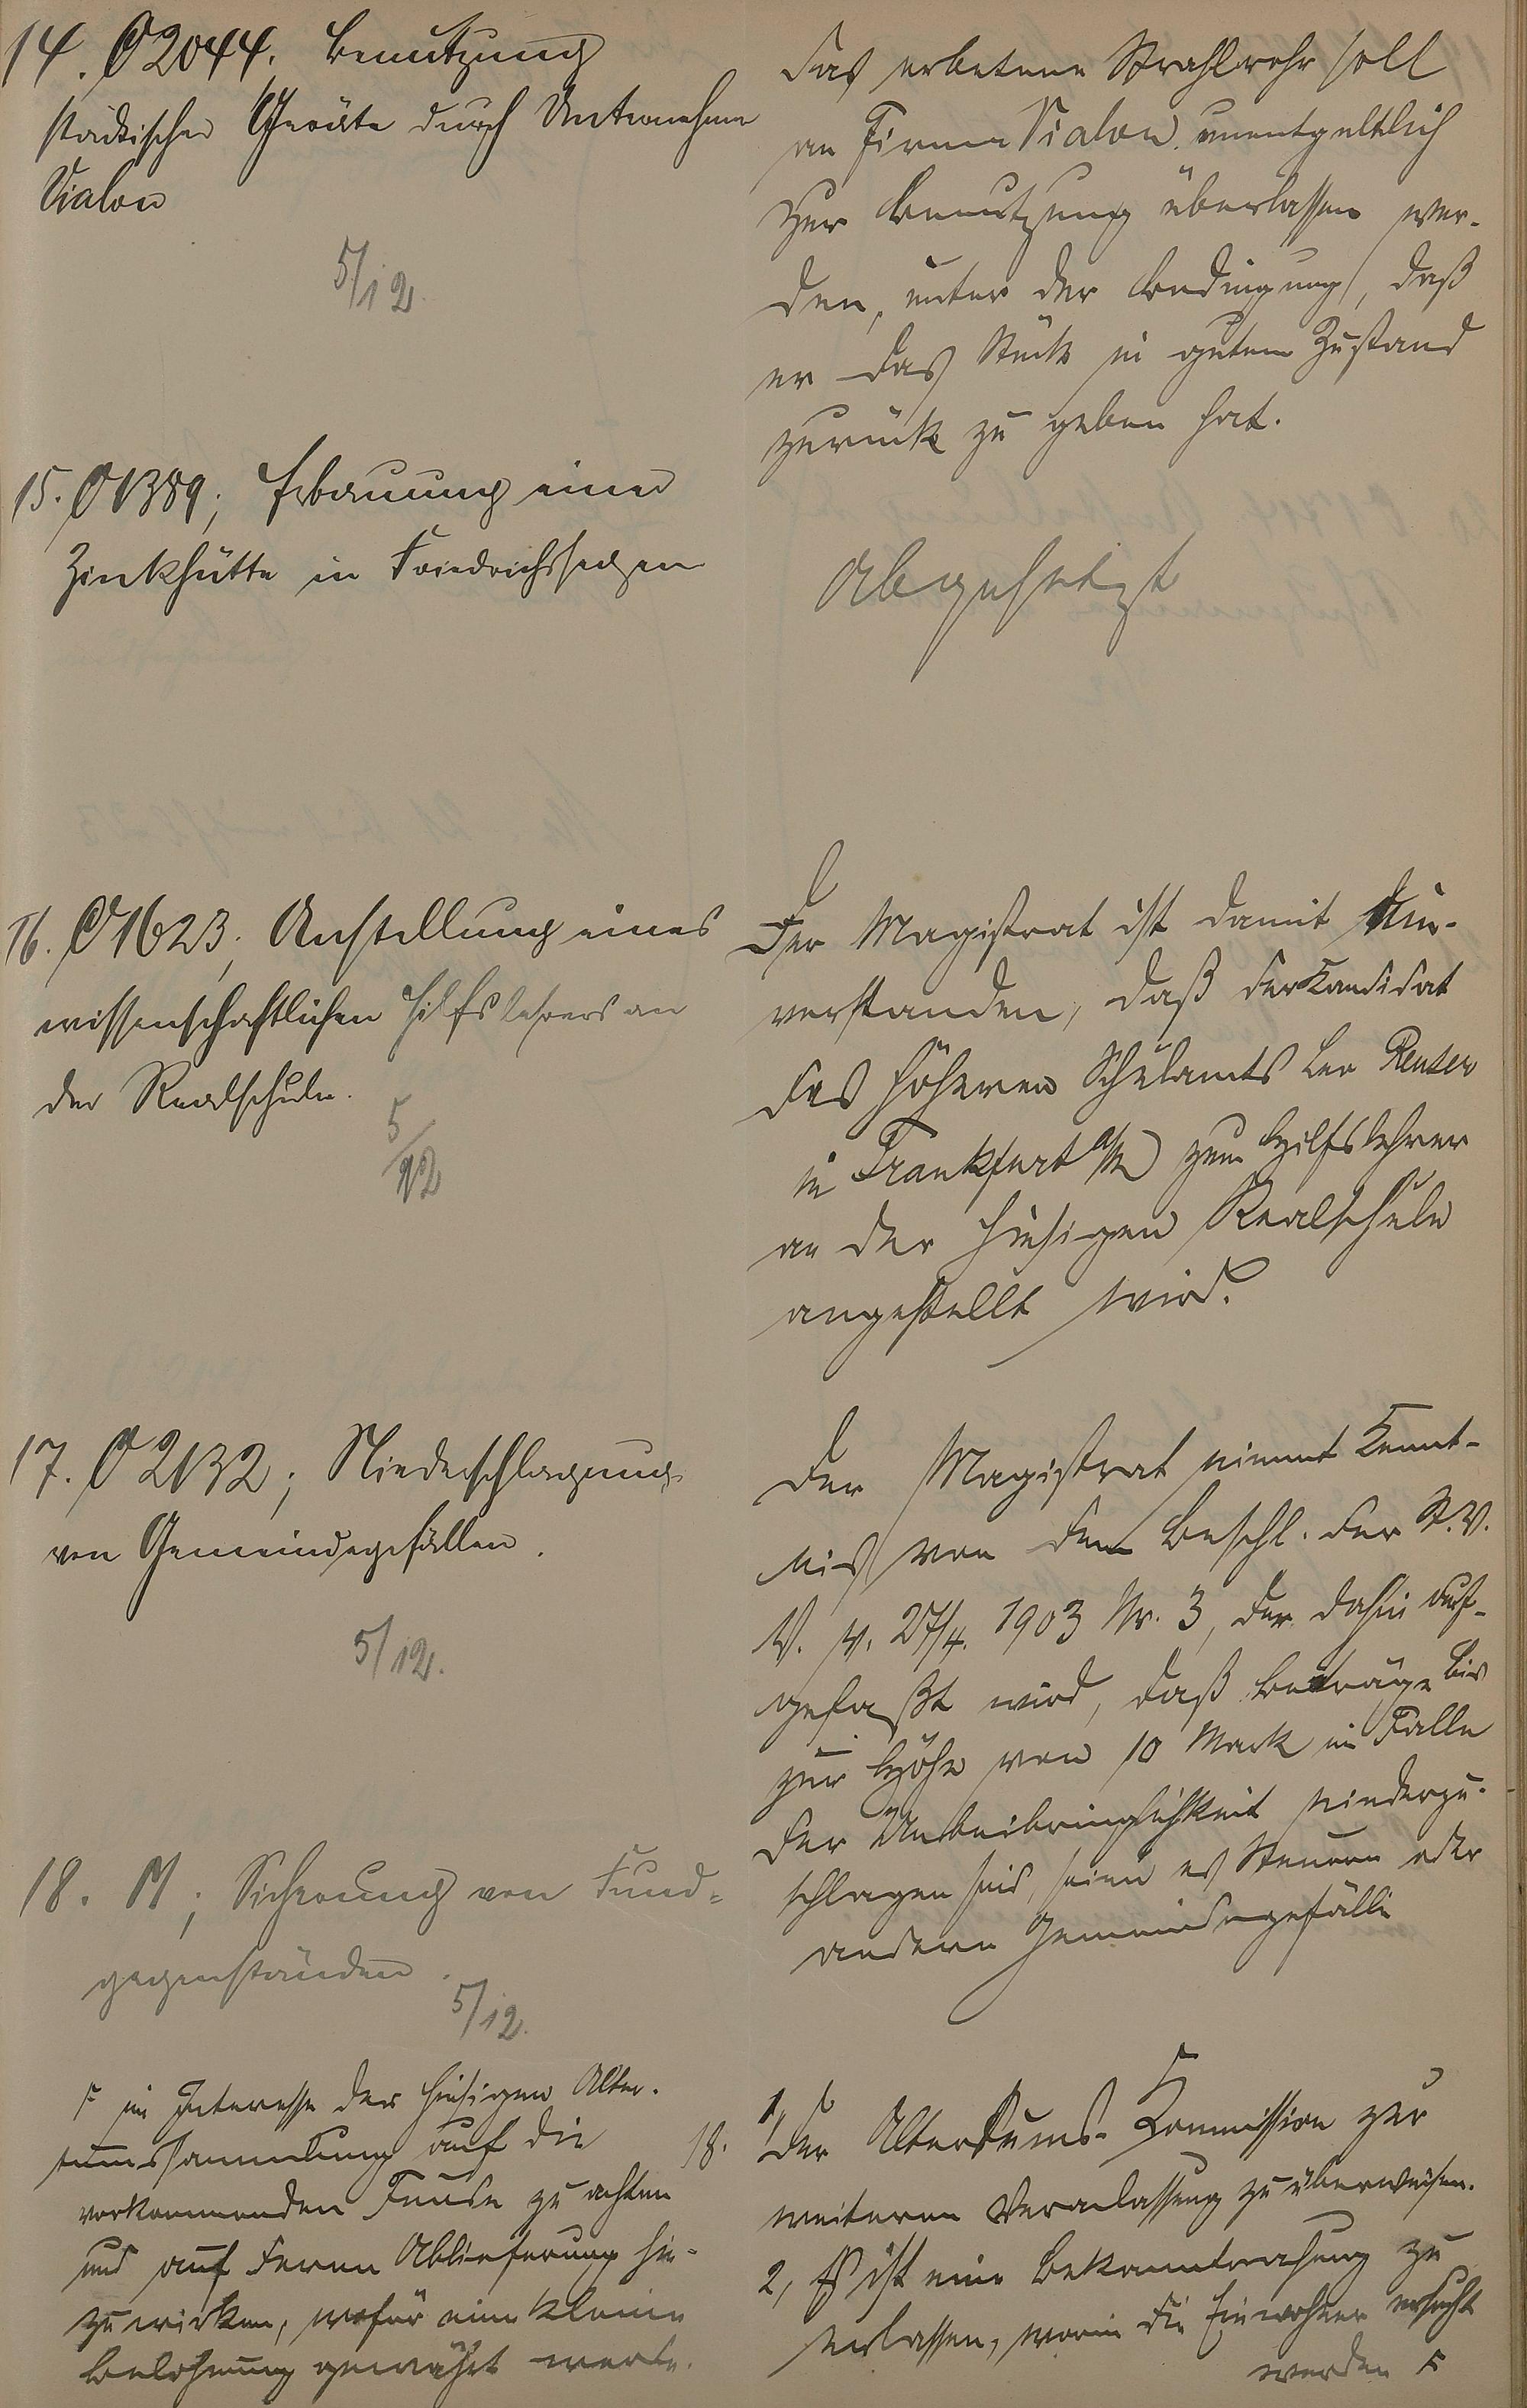 14. O 2044. Benutzung
städtischer Geräte durch Unternehmer
Vialon
5/12.
Das erbetene Strahlrohr soll
an Firma Vialon unentgeltlich
zur Benutzung überlassen wer-
den, unter der Bedingung, daß
er das Stück in gutem Zustand
zurück zu geben hat.
15. O 1389; Erbauung einer
Zinkhütte in Friedrichssegen
Abgesetzt
16. O 1623; Anstellung eines
wissenschaftlichen Hilfslehrers an
der Realschule.
5/12
Der Magistrat ist damit ein-
verstanden, daß der Kandidat
des höheren Schulamts Leo Reuter
in Frankfurt a/M zum Hilfslehrer
an der hiesigen Realschule
angestellt wird.
17. O 2132; Niederschlagung
von Gemeindegefällen.
5/12.
Der Magistrat nimmt Kennt-
nis von dem Beschl. der St.V.
V. v. 27/4. 1903 Nr. 3, der dahin auf-
gefaßt wird, daß Beträge bis
zur Höhe von 10 Mark im Falle
der Unbeibringlichkeit niederzu-
schlagen sind, seien es Steuern oder
andere Gemeindegefälle
18. M; Sicherung von Fund-
gegenständen.
5/12.
18. 1, Der Altertums-Kommission zur
weiteren Veranlassung zu überweisen.
2, Es ist eine Bekanntmachung zu
erlassen, worin die Einwohner ersucht
werden F
F im Interesse der hiesigen Alter-
tumssammlung auf die
vorkommenden Funde zu achten
und auf deren Ablieferung hin-
zuwirken, wofür eine kleine
Belohnung gewährt werde.